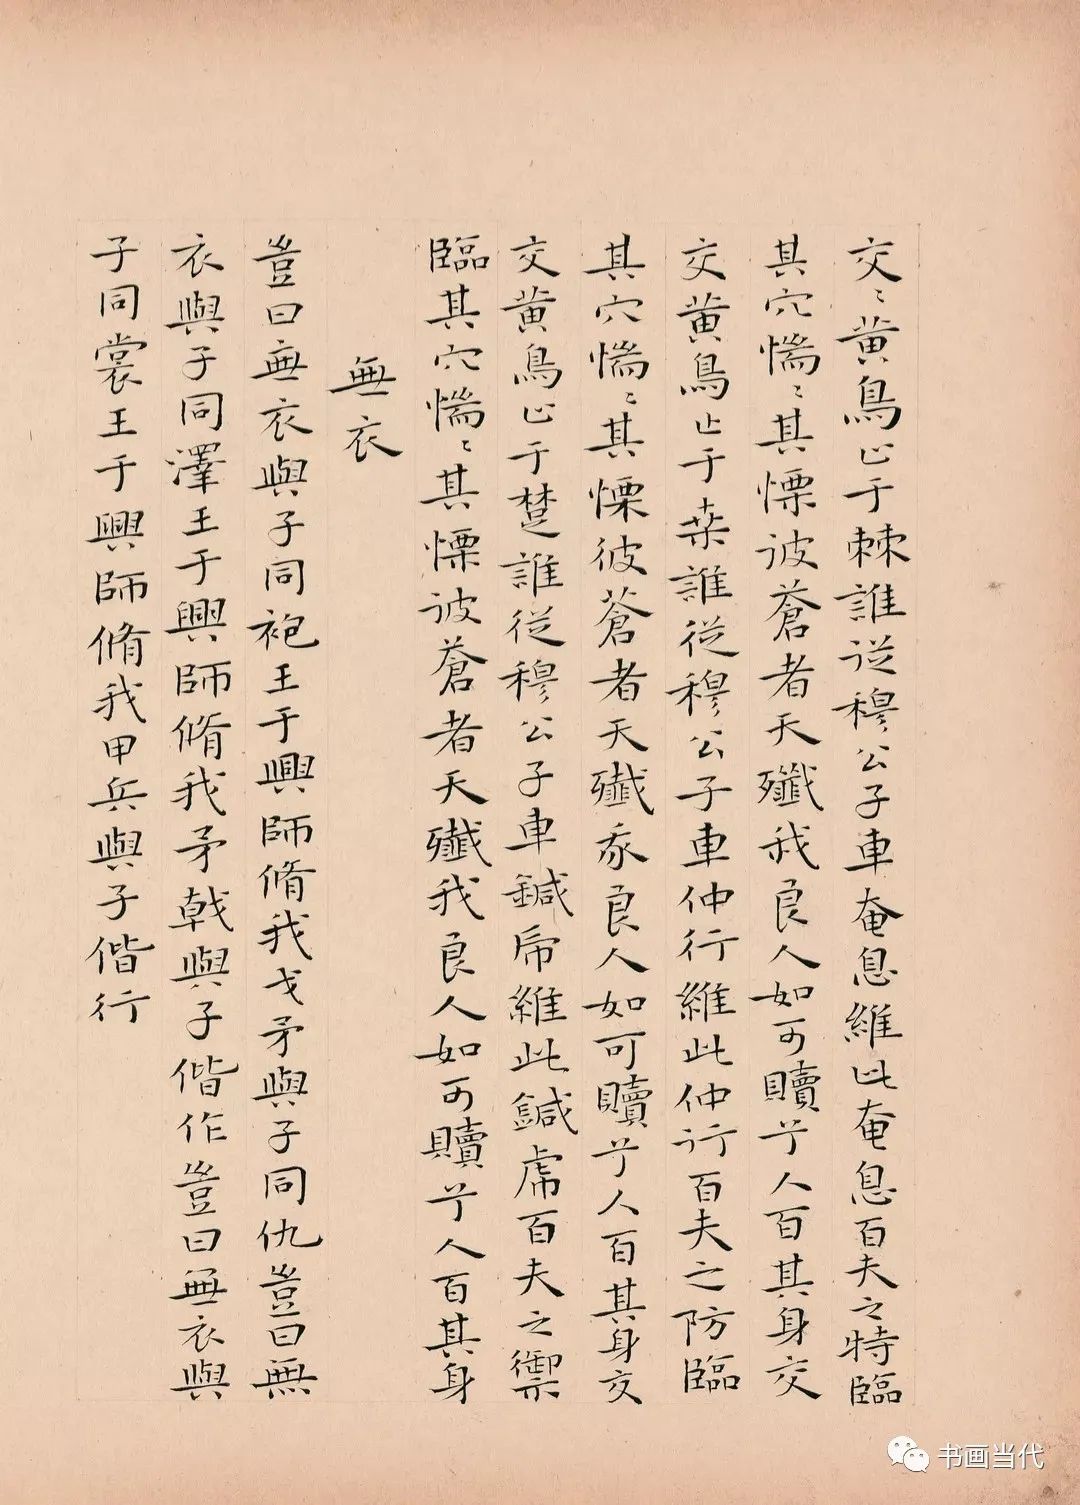 交〻黄鳥止于棘誰従穆公子車奄息維此奄息百夫之特臨
其穴惴〻其慄彼蒼者天殱我良人如可贖兮人百其身交
交黄鳥止于桒誰従穆公子車仲行維此仲行百夫之防臨
其穴惴〻其慄彼蒼者天殱我良人如可贖兮人百其身交
交黄鳥止于楚誰従穆公子車鍼虎維此鍼虎百夫之禦
臨其穴惴〻其慄彼蒼者天殱我良人如可贖兮人百其身
無衣
豈曰無衣與子同袍王于興師脩我戈矛與子同仇豈曰無
衣與子同澤王于興師脩我矛戟與子偕作豈曰無衣與
子同裳王于興師脩我甲兵與子偕行
书画当代